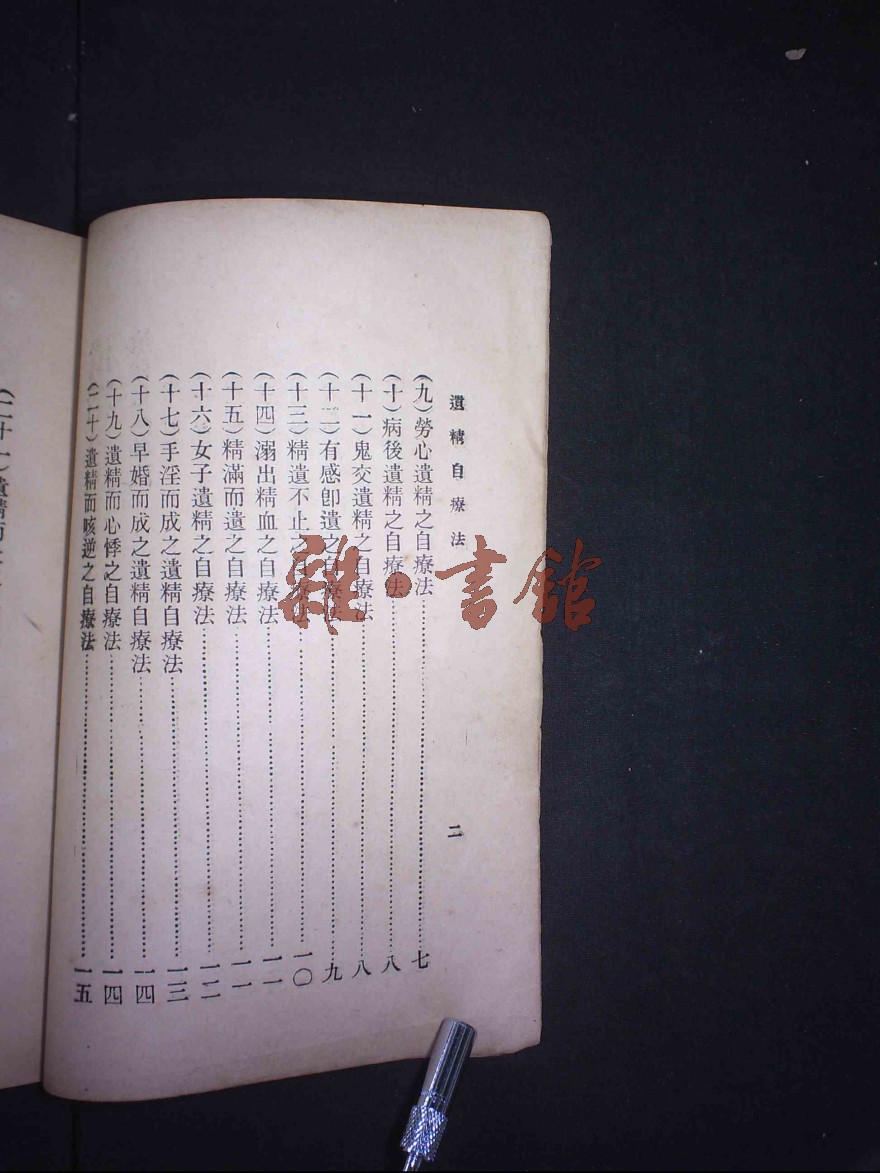 遺精自療法
二
（九）勞心遺精之自療法……七
（十）病後遺精之自療法……八
（十一）鬼交遺精之自療法……八
（十二）有感卽遺之自療法……九
（十三）精遺不止之自療法……一〇
（十四）溺出精血之自療法……一一
（十五）精滿而遺之自療法……一一
（十六）女子遺精之自療法……一二
（十七）手淫而成之遺精自療法……一三
（十八）早婚而成之遺精自療法……一四
（十九）遺精而心悸之自療法……一四
（二十）遺精而咳逆之自療法……一五
（二十一）遺精而
雜·書館